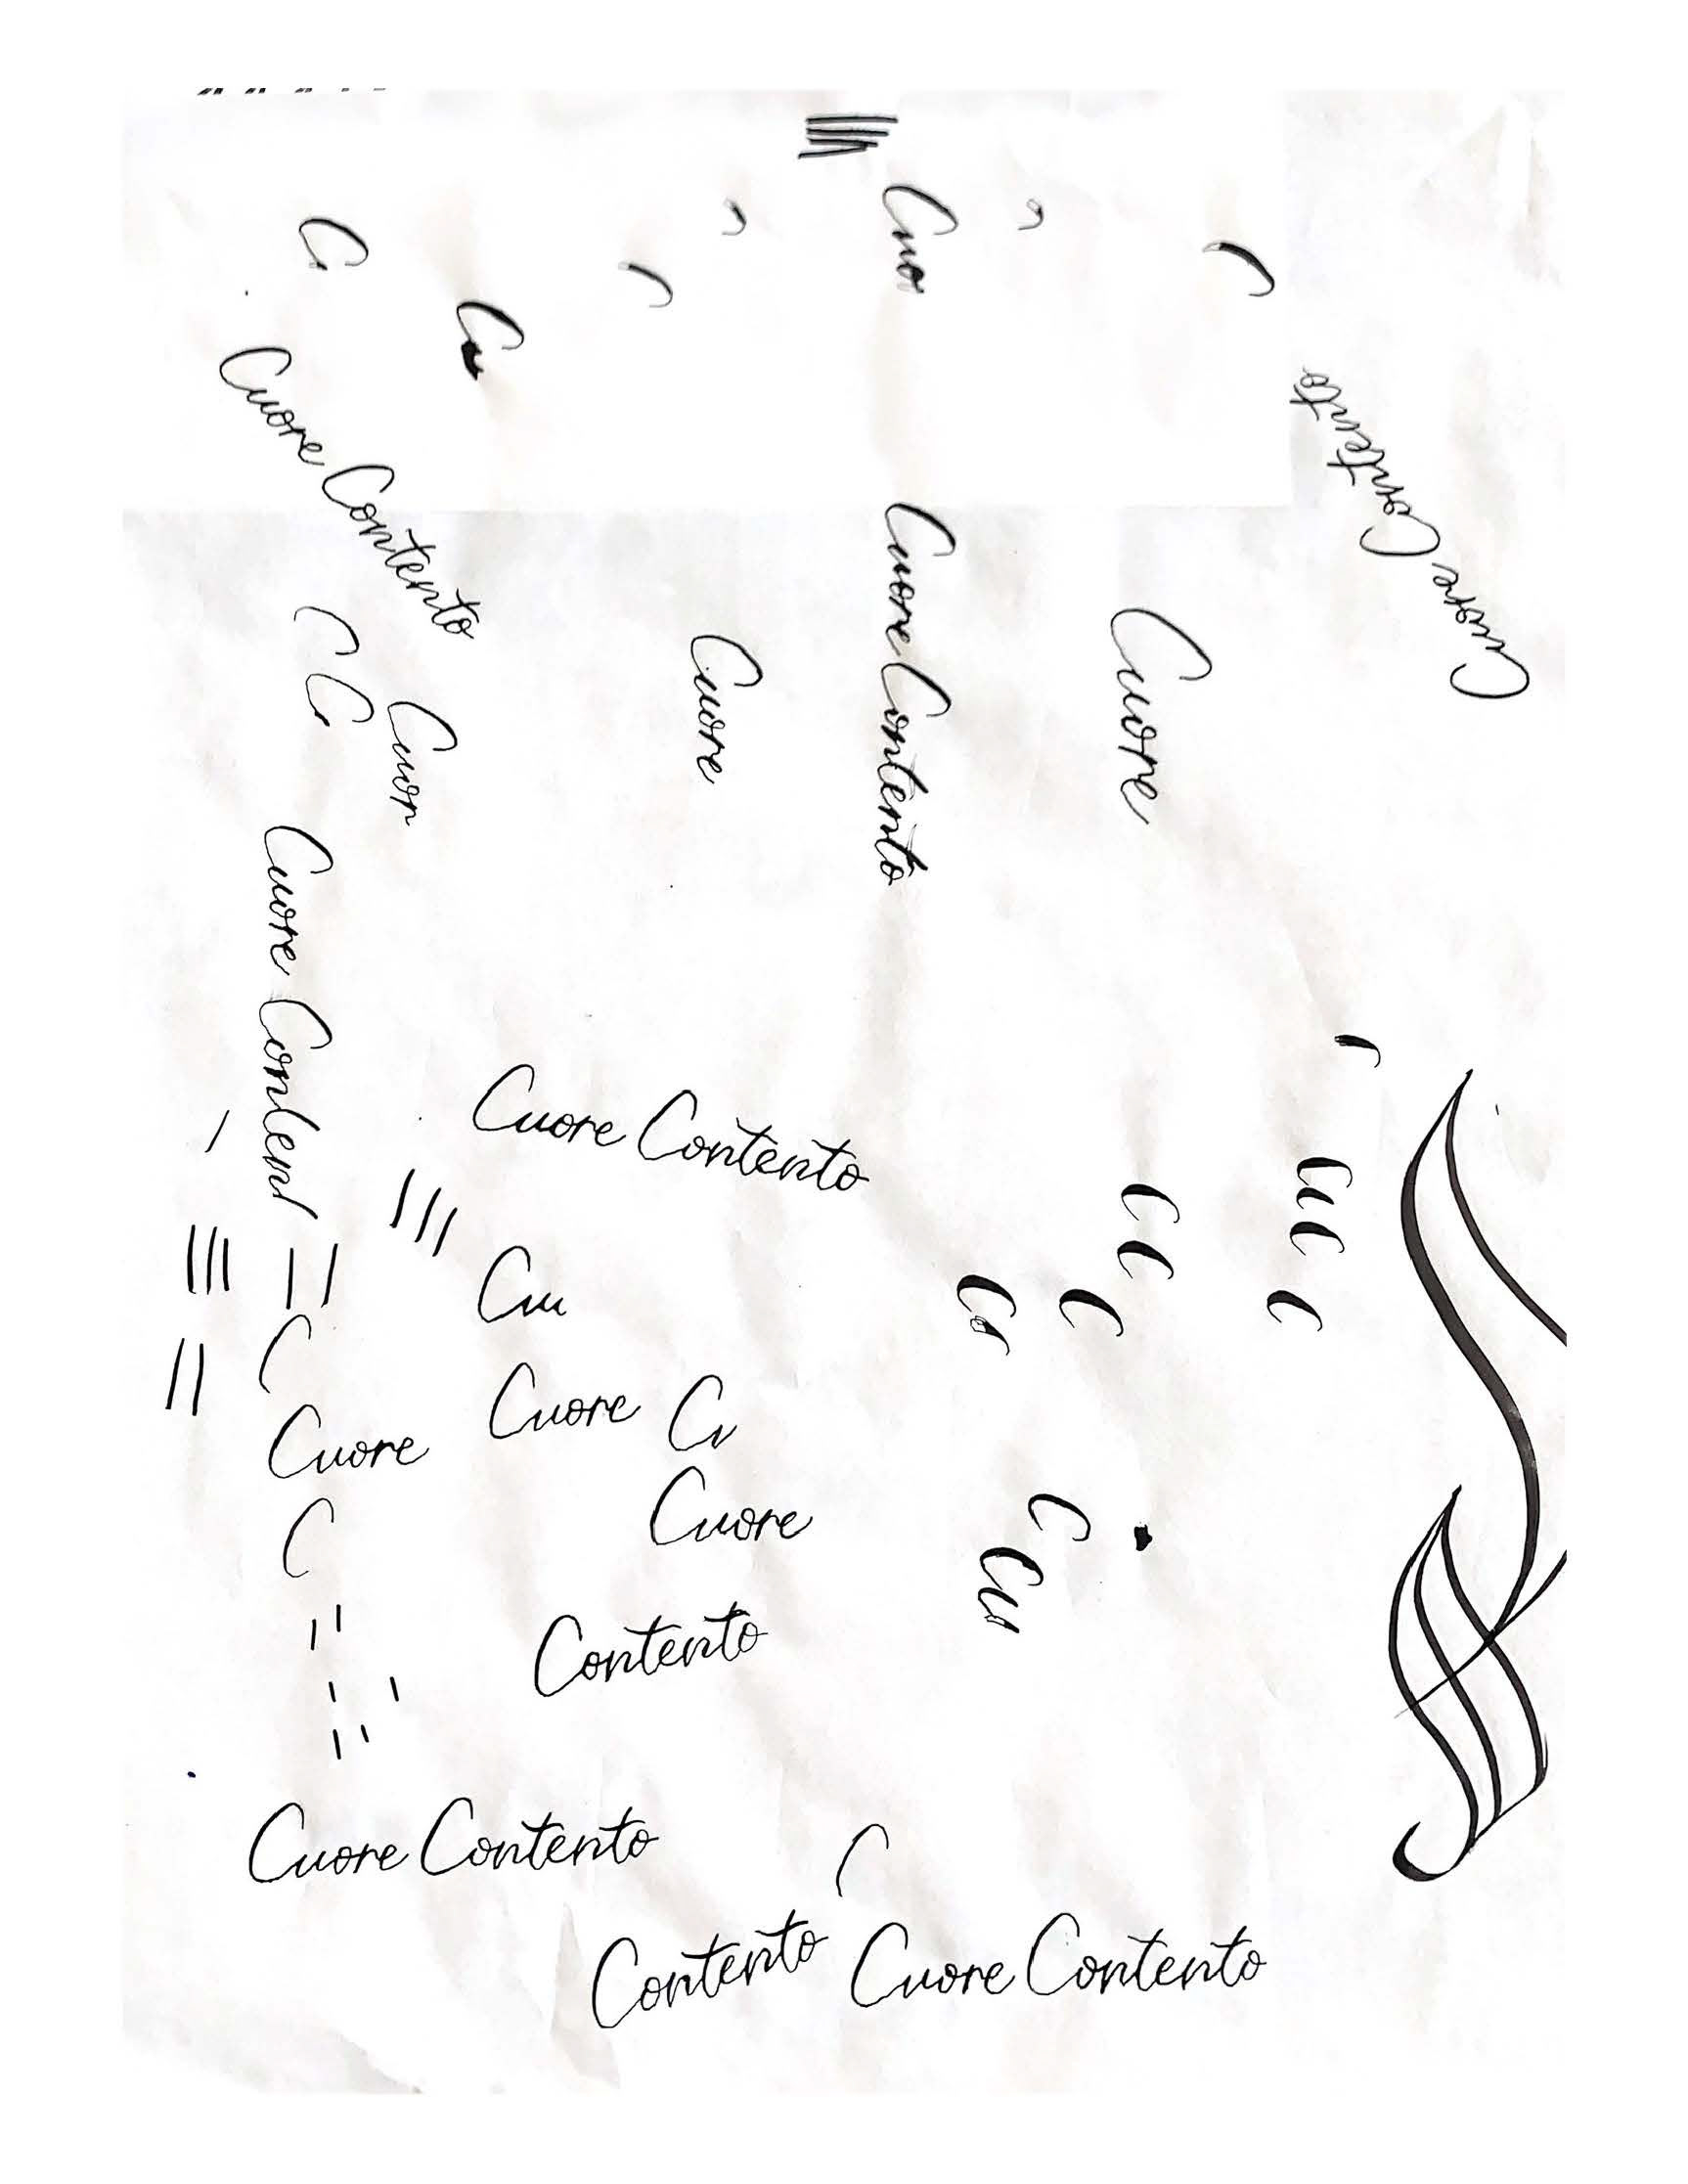 Cuo
C
C
Cu
Cuore Contento
Cuore Contento
Cuore Contento
C
C
Cuore
Cuore
Cuor
Cuore Conten
Cuore Contento
C
Cu
C
C
C
C
C
Cu
Co
C
Cuore
Cu
Cuore
C
Cuore
C
Cu
Contento
Cuore Contento
C
Contento
Cuore Contento